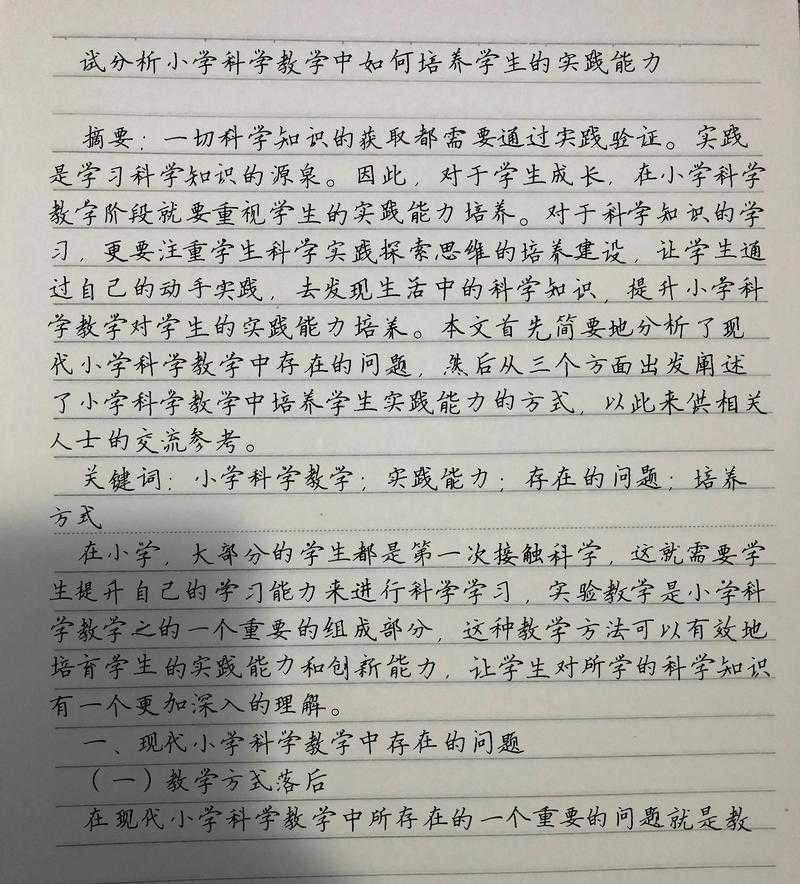 试分析小学科学教学中如何培养学生的实践能力
摘要：一切科学知识的获取都需要通过实践验证。实践
是学习科学知识的源泉。因此，对于学生成长，在小学科学
教学阶段就要重视学生的实践能力培养。对于科学知识的学
习，更要注重学生科学实践探索思维的培养建设，让学生通
过自己的动手实践，去发现生活中的科学知识，提升小学科
学教学对学生的实践能力培养。本文首先简要地分析了现
代小学科学教学中存在的问题，然后从三个方面出发阐述
了小学科学教学中培养学生实践能力的方式，以此来供相关
人士的交流参考。
关键词：小学科学教学；实践能力；存在的问题；培养
方式
在小学，大部分的学生都是第一次接触科学，这就需要学
生提升自己的学习能力来进行科学学习，实验教学是小学科
学教学之的一个重要的组成部分，这种教学方法可以有效地
培育学生的实践能力和创新能力，让学生对所学的科学知识
有一个更加深入的理解。
一、现代小学科学教学中存在的问题
（一）教学方式落后
在现代小学科学教学中所存在的一个重要的问题就是教